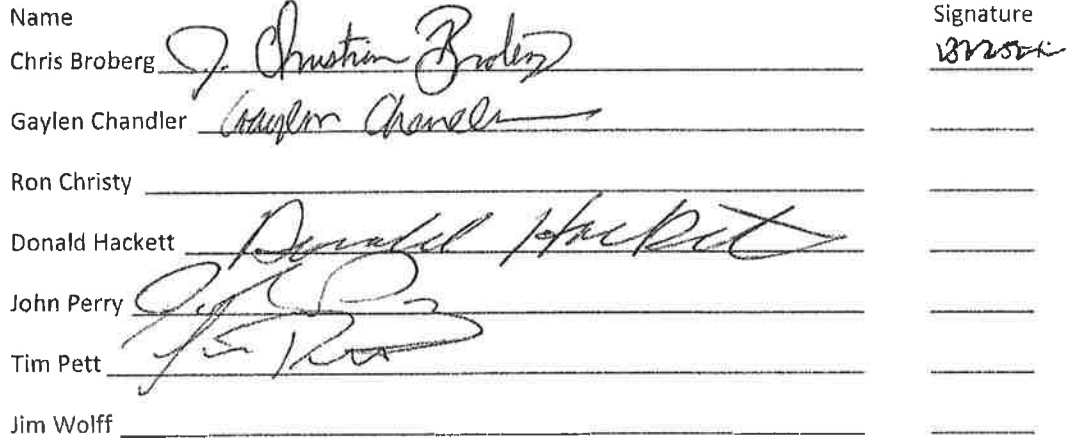 Name Signature
Chris Broberg J. Christian Broberg
Gaylen Chandler Gaylen Chandler
Ron Christy
Donald Hackett Donald Hackett
John Perry
Tim Pett
Jim Wolff